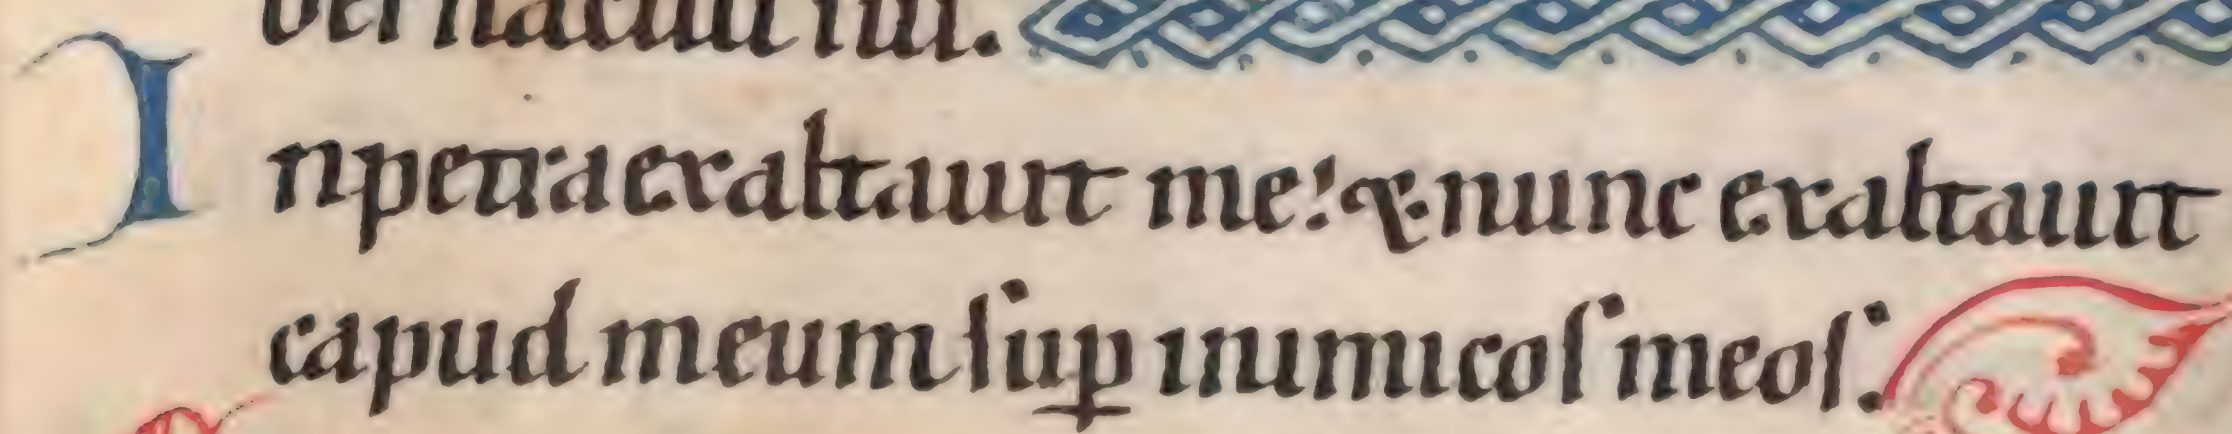 bernaculi sui.
In petra exaltauit me: & nunc exaltauit
capud meum sup̱ inimicos meos.